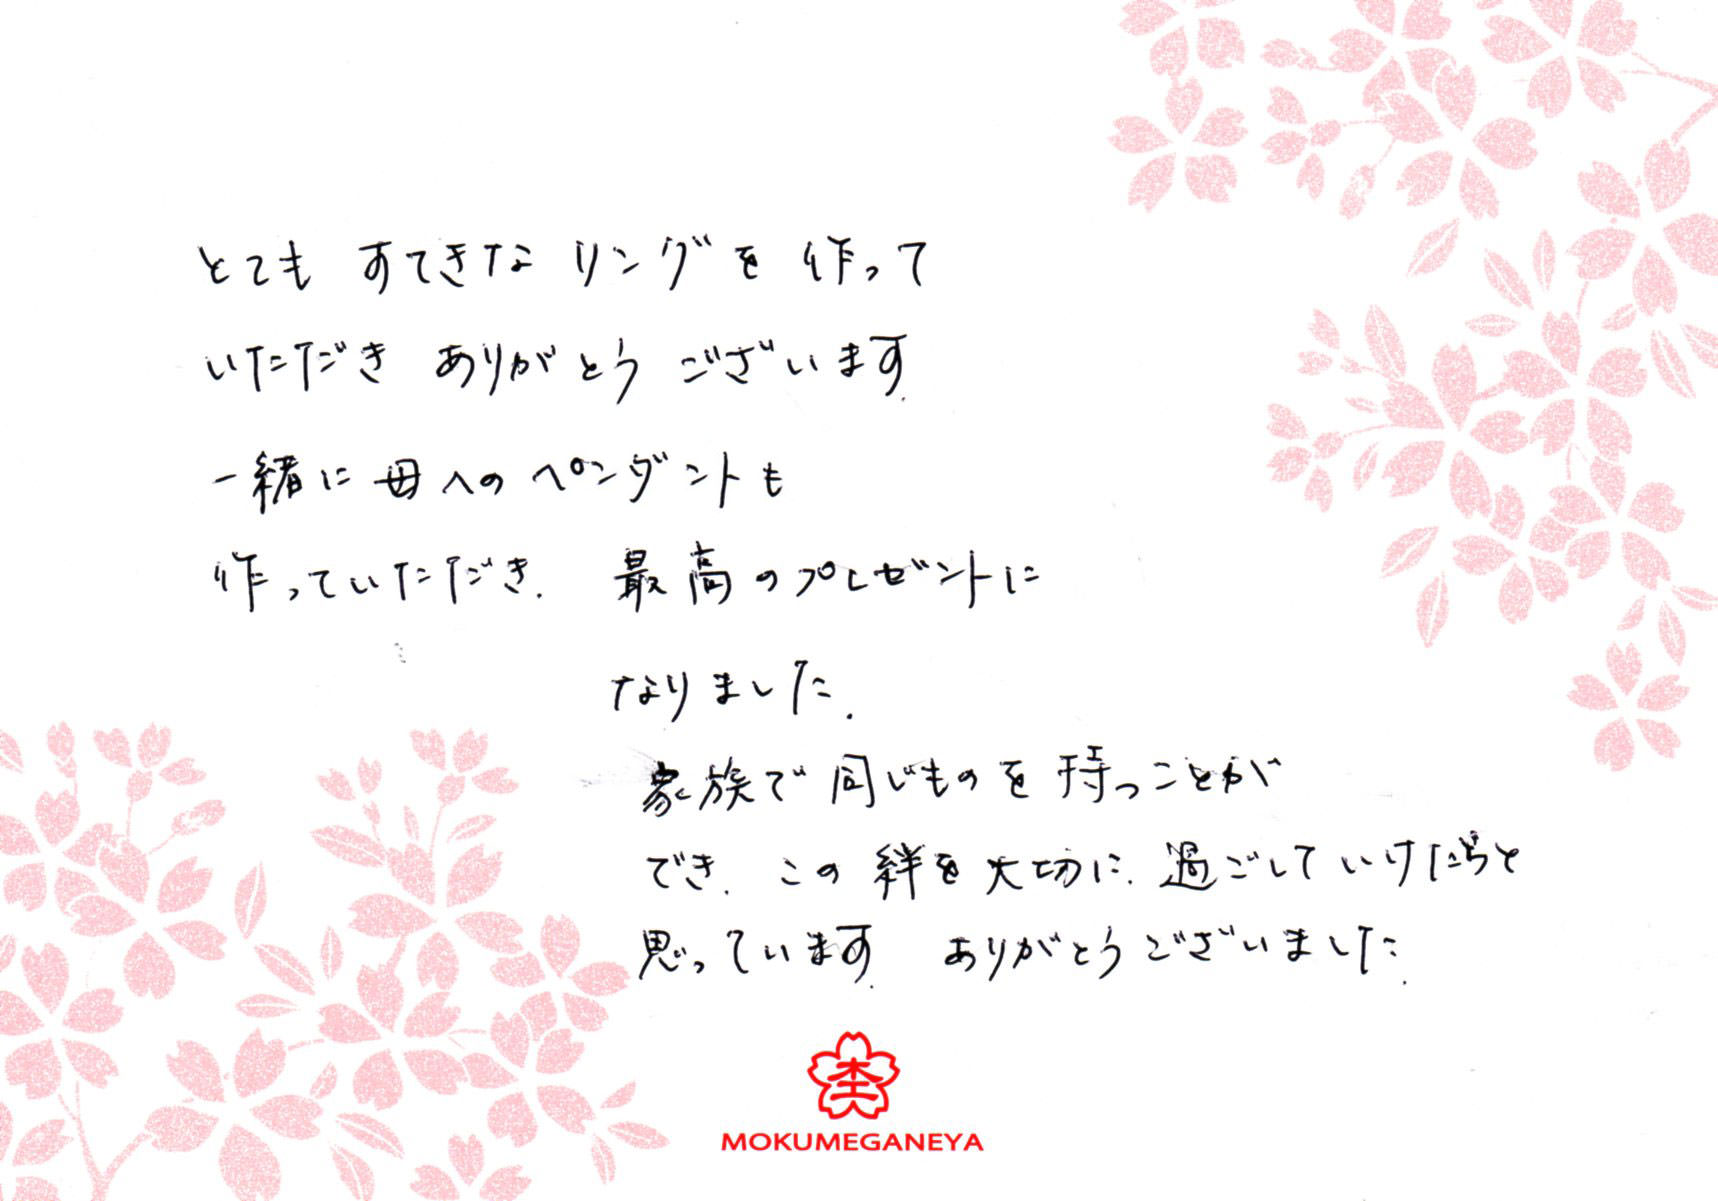 とても すてきな リングを 作って
いただき ありがとう ございます.
一緒に 母への ペンダントも
作っていただき. 最高のプレゼントに
なりました.
家族で 同じものを 持つことが
でき. この 絆を 大切に. 過ごして いけたらと
思っています. ありがとうございました.
MOKUMEGANEYA